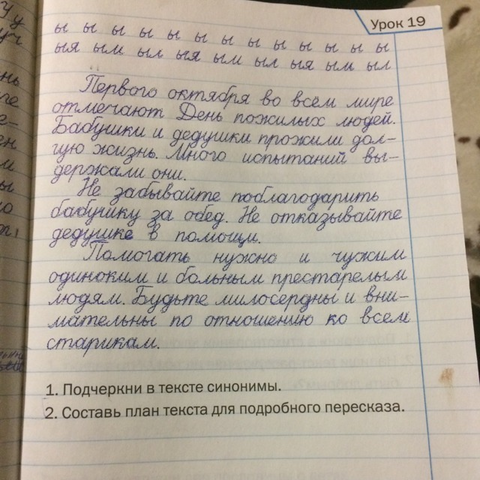 Урок 19
ы ы ы ы ы ы ы ы ы ы ы ы ы
ыя ым ыл ыя ым ыл ыя ым ыл
Первого октября во всем мире
отмечают День пожилых людей.
Бабушки и дедушки прожили дол-
гую жизнь. Много испытаний вы-
держали они.
Не забывайте поблагодарить
бабушку за обед. Не отказывайте
дедушке в помощи.
Помогать нужно и чужим
одиноким и больным престарелым
людям. Будьте милосердны и вни-
мательны по отношению ко всем
старикам.
1. Подчеркни в тексте синонимы.
2. Составь план текста для подробного пересказа.